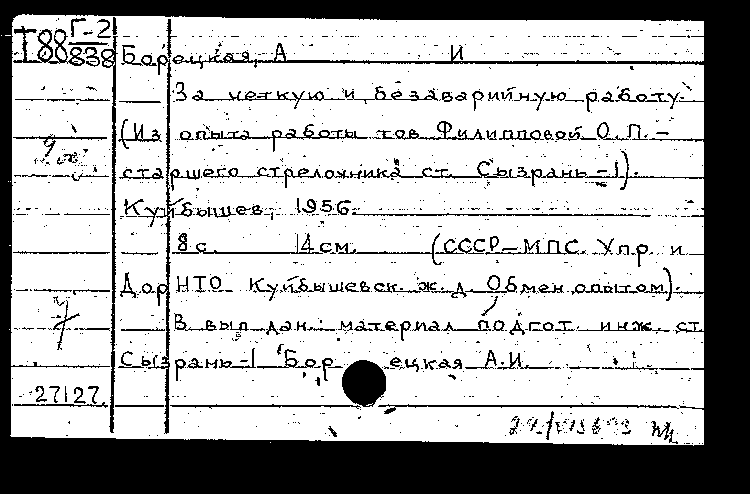 Г-2
Т88 838
Борецкая, А И
За четкую и безаварийную работу.
(Из опыта работы тов Филипповой О.П. –
старшего стрелочника ст. Сызрань-1).
Куйбышев, 1956.
8 с. 14 см. (СССР–МПС. Упр. и
Дор НТО Куйбышевск. ж.д. Обмен опытом).
В вып дан.: материал подгот. инж. ст
Сызрань-1 Борецкая А.И.
27127.